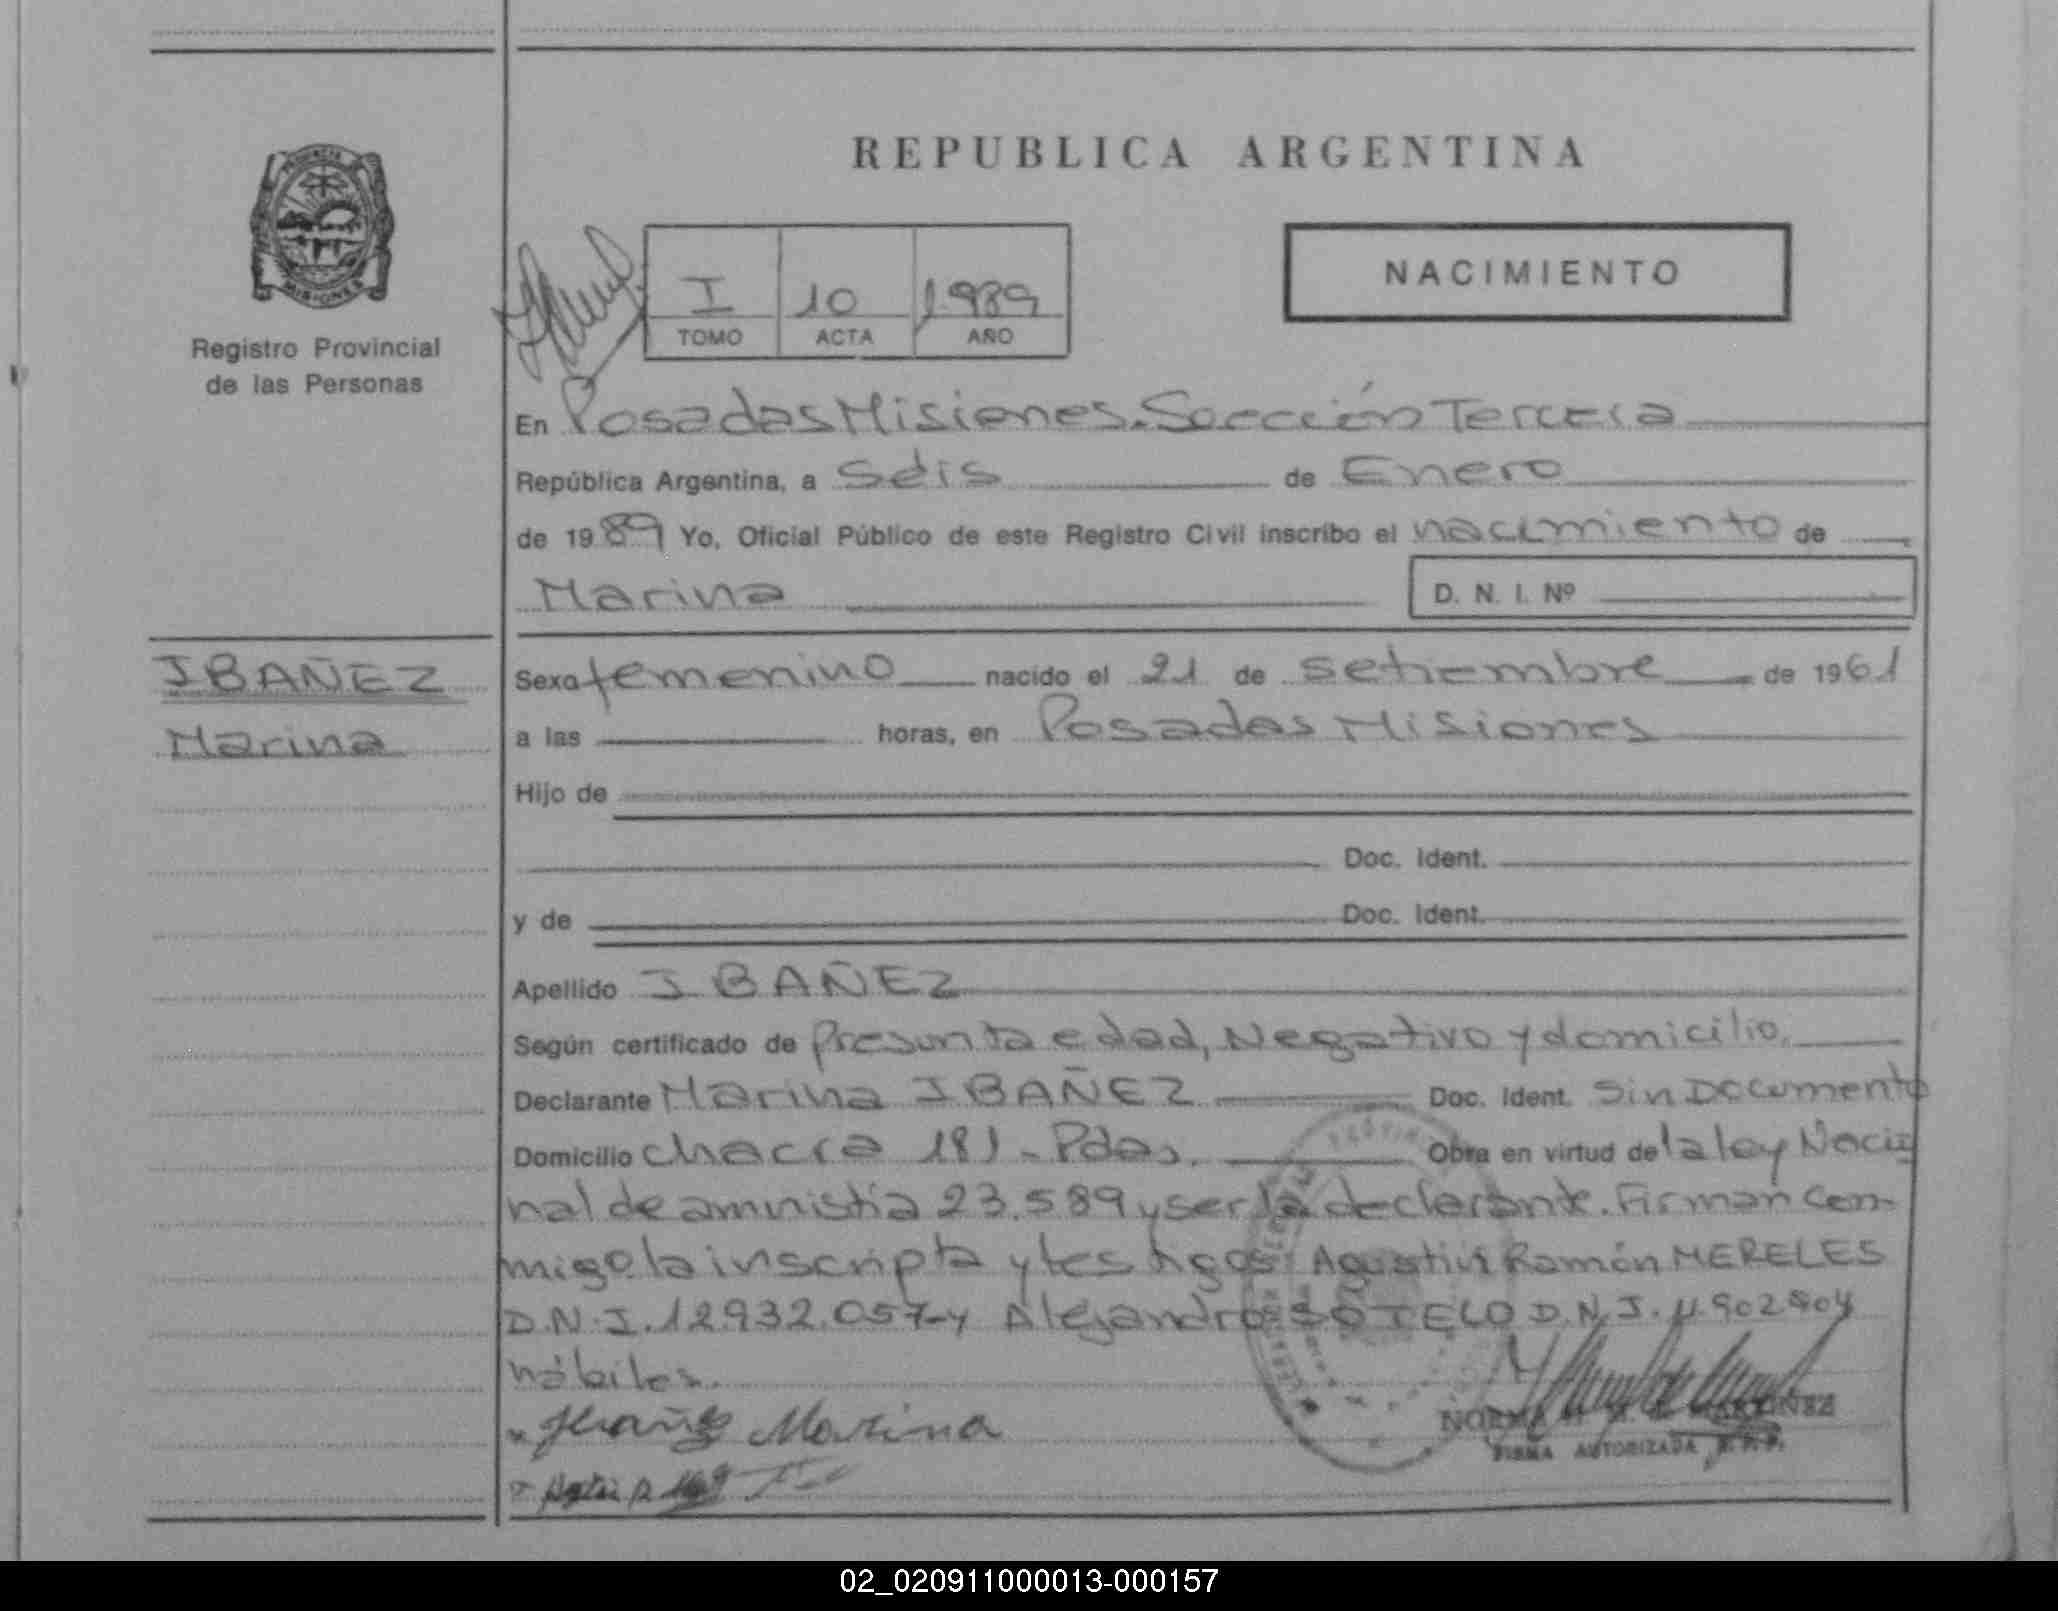 REPUBLICA ARGENTINA
PROVINCIA
MISIONES
Registro Provincial
de las Personas
I 10 1.989
TOMO ACTA AÑO
NACIMIENTO
En Posadas Misiones. Sección Tercera
República Argentina, a Seis de Enero
de 1989 Yo, Oficial Público de este Registro Civil inscribo el nacimiento de
Marina D. N. I. Nº
IBAÑEZ
Marina
Sexo femenino nacido el 21 de setiembre de 1961
a las horas, en Posadas Misiones
Hijo de
Doc. Ident.
y de Doc. Ident.
Apellido IBAÑEZ
Según certificado de Presunta edad, Negativo y domicilio.
Declarante Marina IBAÑEZ Doc. Ident. Sin Documento
Domicilio chacra 181 - Pdas. Obra en virtud de la ley Nacio
nal de amnistia 23.589 y ser la declarante. Firman con-
migo la inscripta y testigos Agustin Ramón MERELES
D.N.I. 12.932.057 y Alejandro SOTELO D.N.I.
hábiles.
Ibañez Marina
NORMA
FIRMA AUTORIZADA
02_020911000013-000157